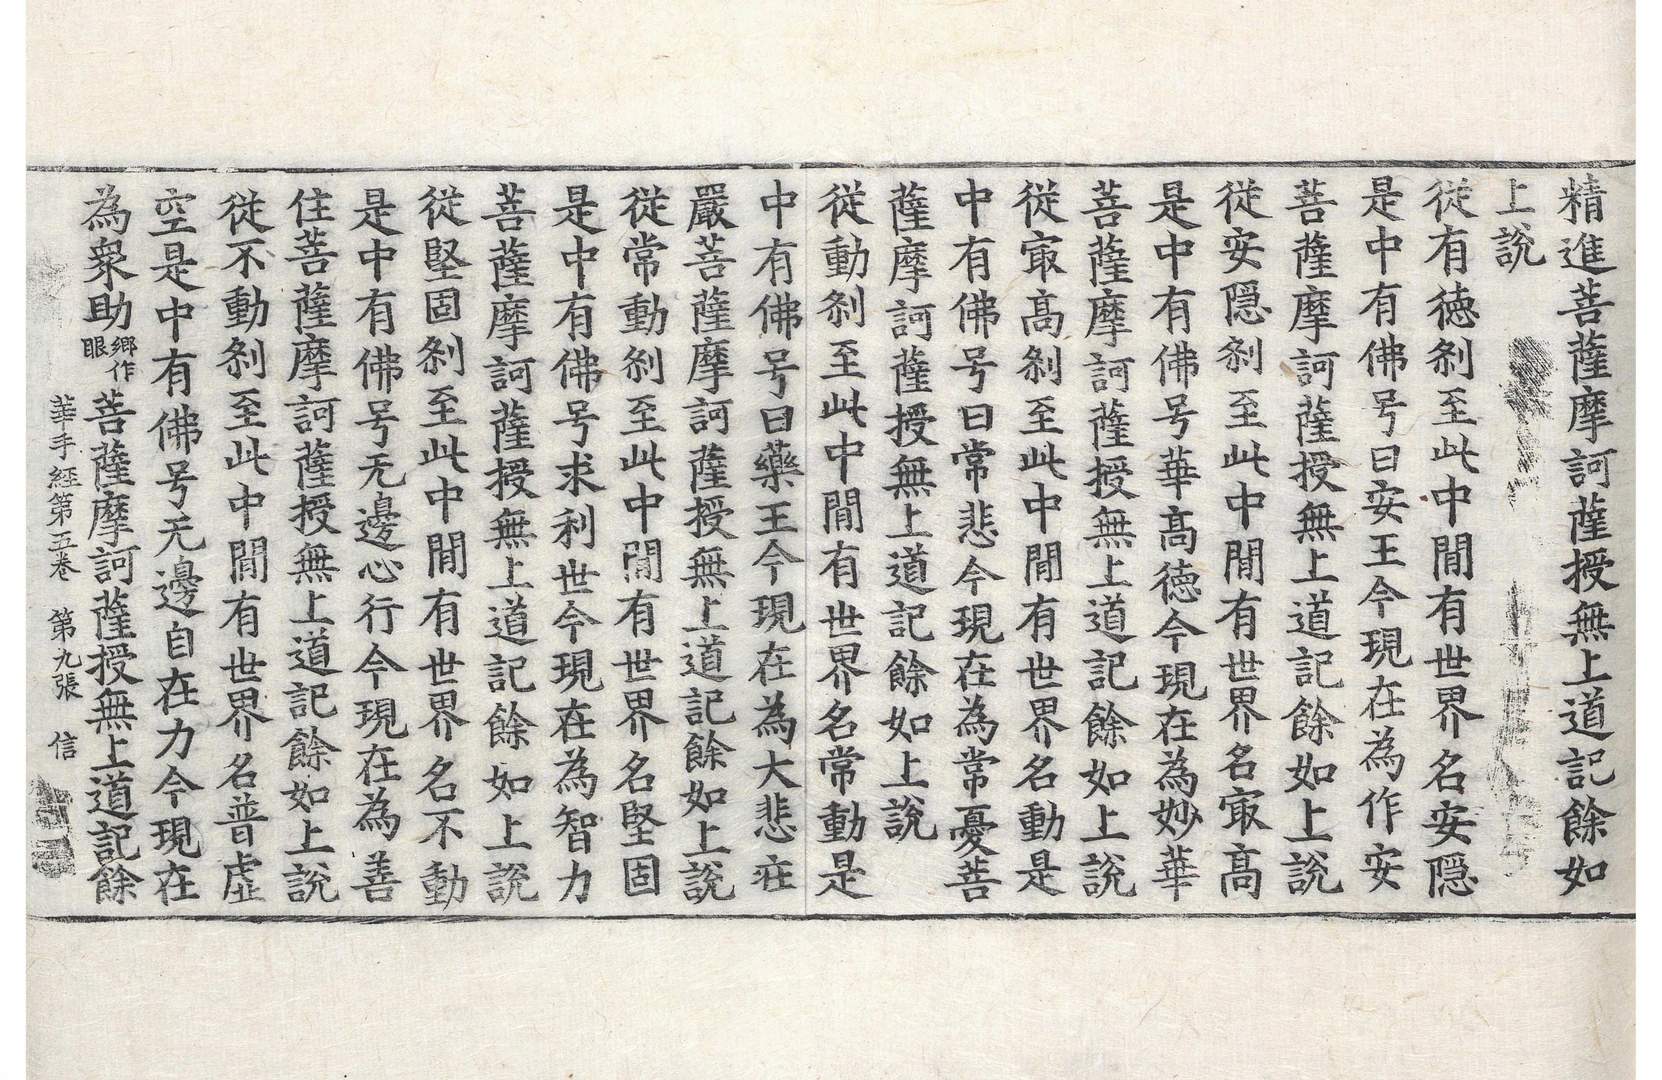 精進菩薩摩訶薩授無上道記餘如
上說
從有德刹至此中間有世界名安隱
是中有佛号曰安王今現在為作安
菩薩摩訶薩授無上道記餘如上說
從安隱刹至此中間有世界名㝡高
是中有佛号華高德今現在為妙華
菩薩摩訶薩授無上道記餘如上說
從㝡高刹至此中間有世界名動是
中有佛号曰常悲今現在為常憂菩
薩摩訶薩授無上道記餘如上說
從動刹至此中間有世界名常動是
中有佛号曰藥王今現在為大悲莊
嚴菩薩摩訶薩授無上道記餘如上說
從常動刹至此中間有世界名堅固
是中有佛号求利世今現在為智力
菩薩摩訶薩授無上道記餘如上說
從堅固刹至此中間有世界名不動
是中有佛号无邊心行今現在為善
住菩薩摩訶薩授無上道記餘如上說
從不動刹至此中間有世界名普虛
空是中有佛号无邊自在力今現在
為衆助鄉作眼菩薩摩訶薩授無上道記餘
華手經第五卷 第九張 信